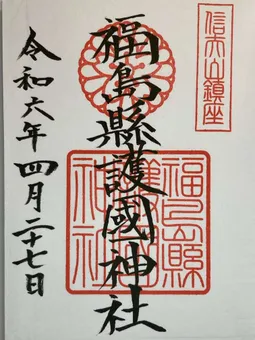 信夫山鎮座
福島縣護國神社
令和六年四月二十七日
福島縣
護國
神社